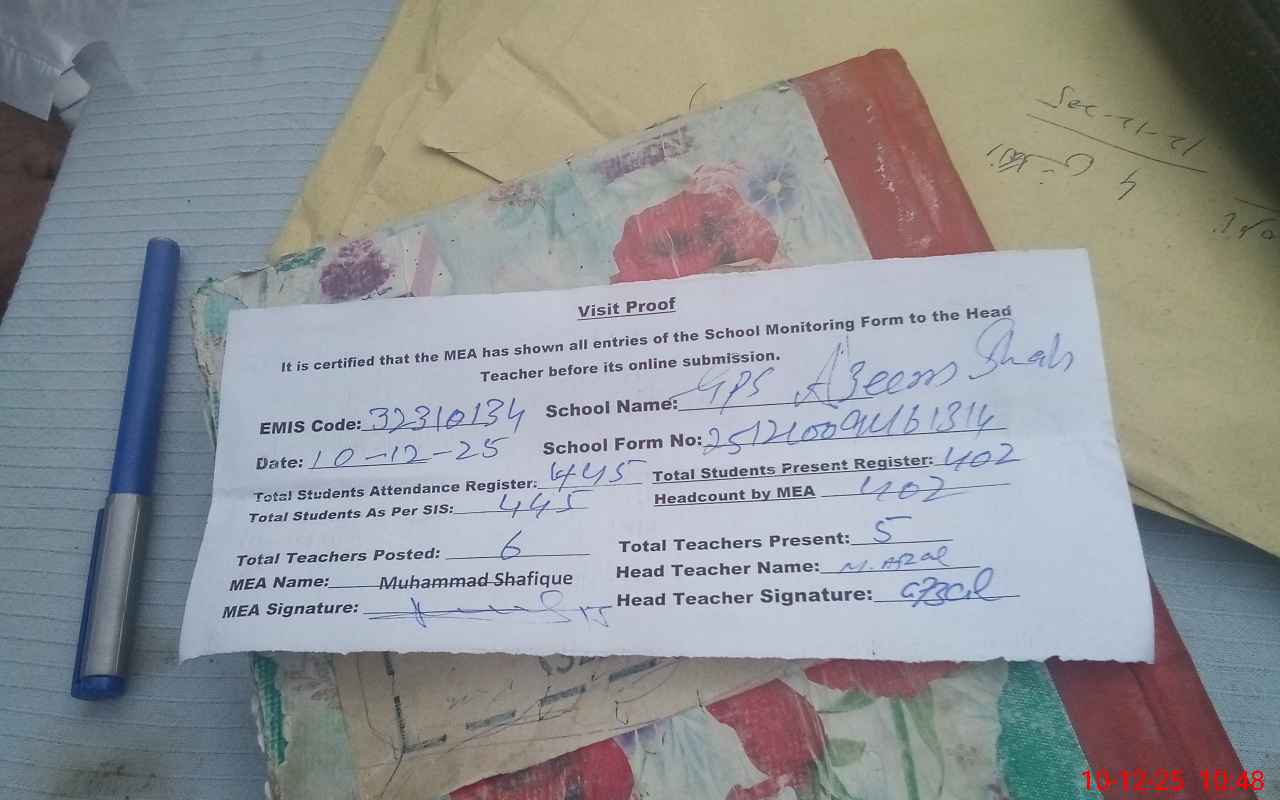 Visit Proof
It is certified that the MEA has shown all entries of the School Monitoring Form to the Head
Teacher before its online submission.
EMIS Code: 32310134 School Name: GPS Azeem Shah
Date: 10-12-25 School Form No:
Total Students Attendance Register: 445 Total Students Present Register: 402
Total Students As Per SIS: 445 Headcount by MEA 402
Total Teachers Posted: 6 Total Teachers Present: 5
MEA Name: Muhammad Shafique Head Teacher Name: M. Afzal
MEA Signature: Head Teacher Signature: afzal
10-12-25 10:48